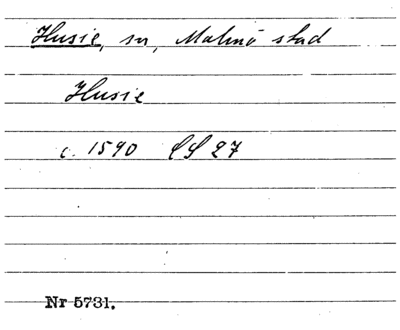 Husie, sn, Malmö stad
Husie
c. 1590 LS 27
Nr 5731.